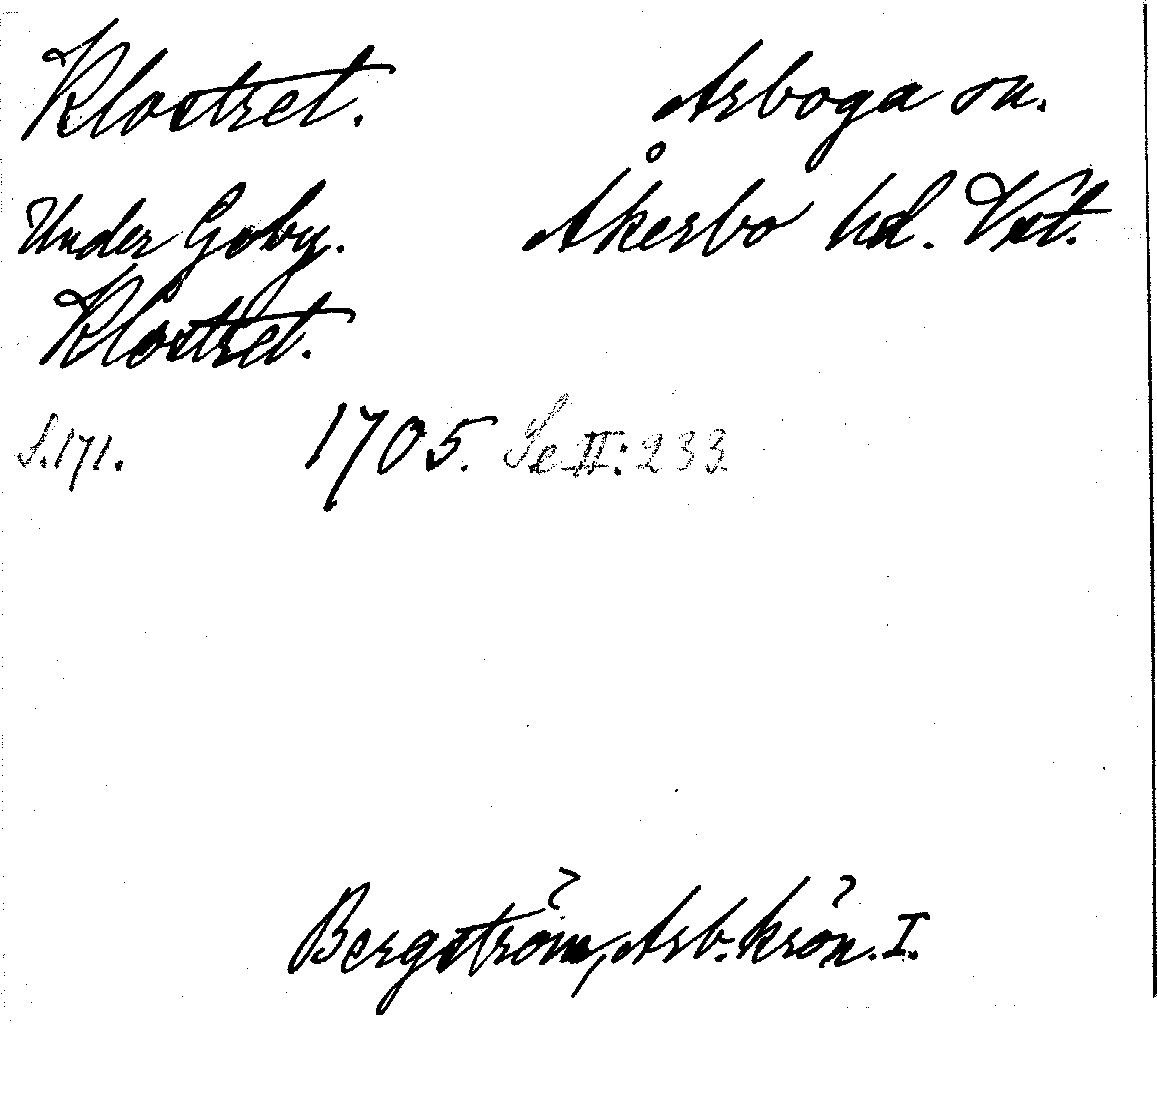 Klostret. Arboga sn.
Under Goby. Åkerbo hd. Vst.
Klostret.
S. 171. 1705. Se II: 233
Bergström, Arb. krön. I.